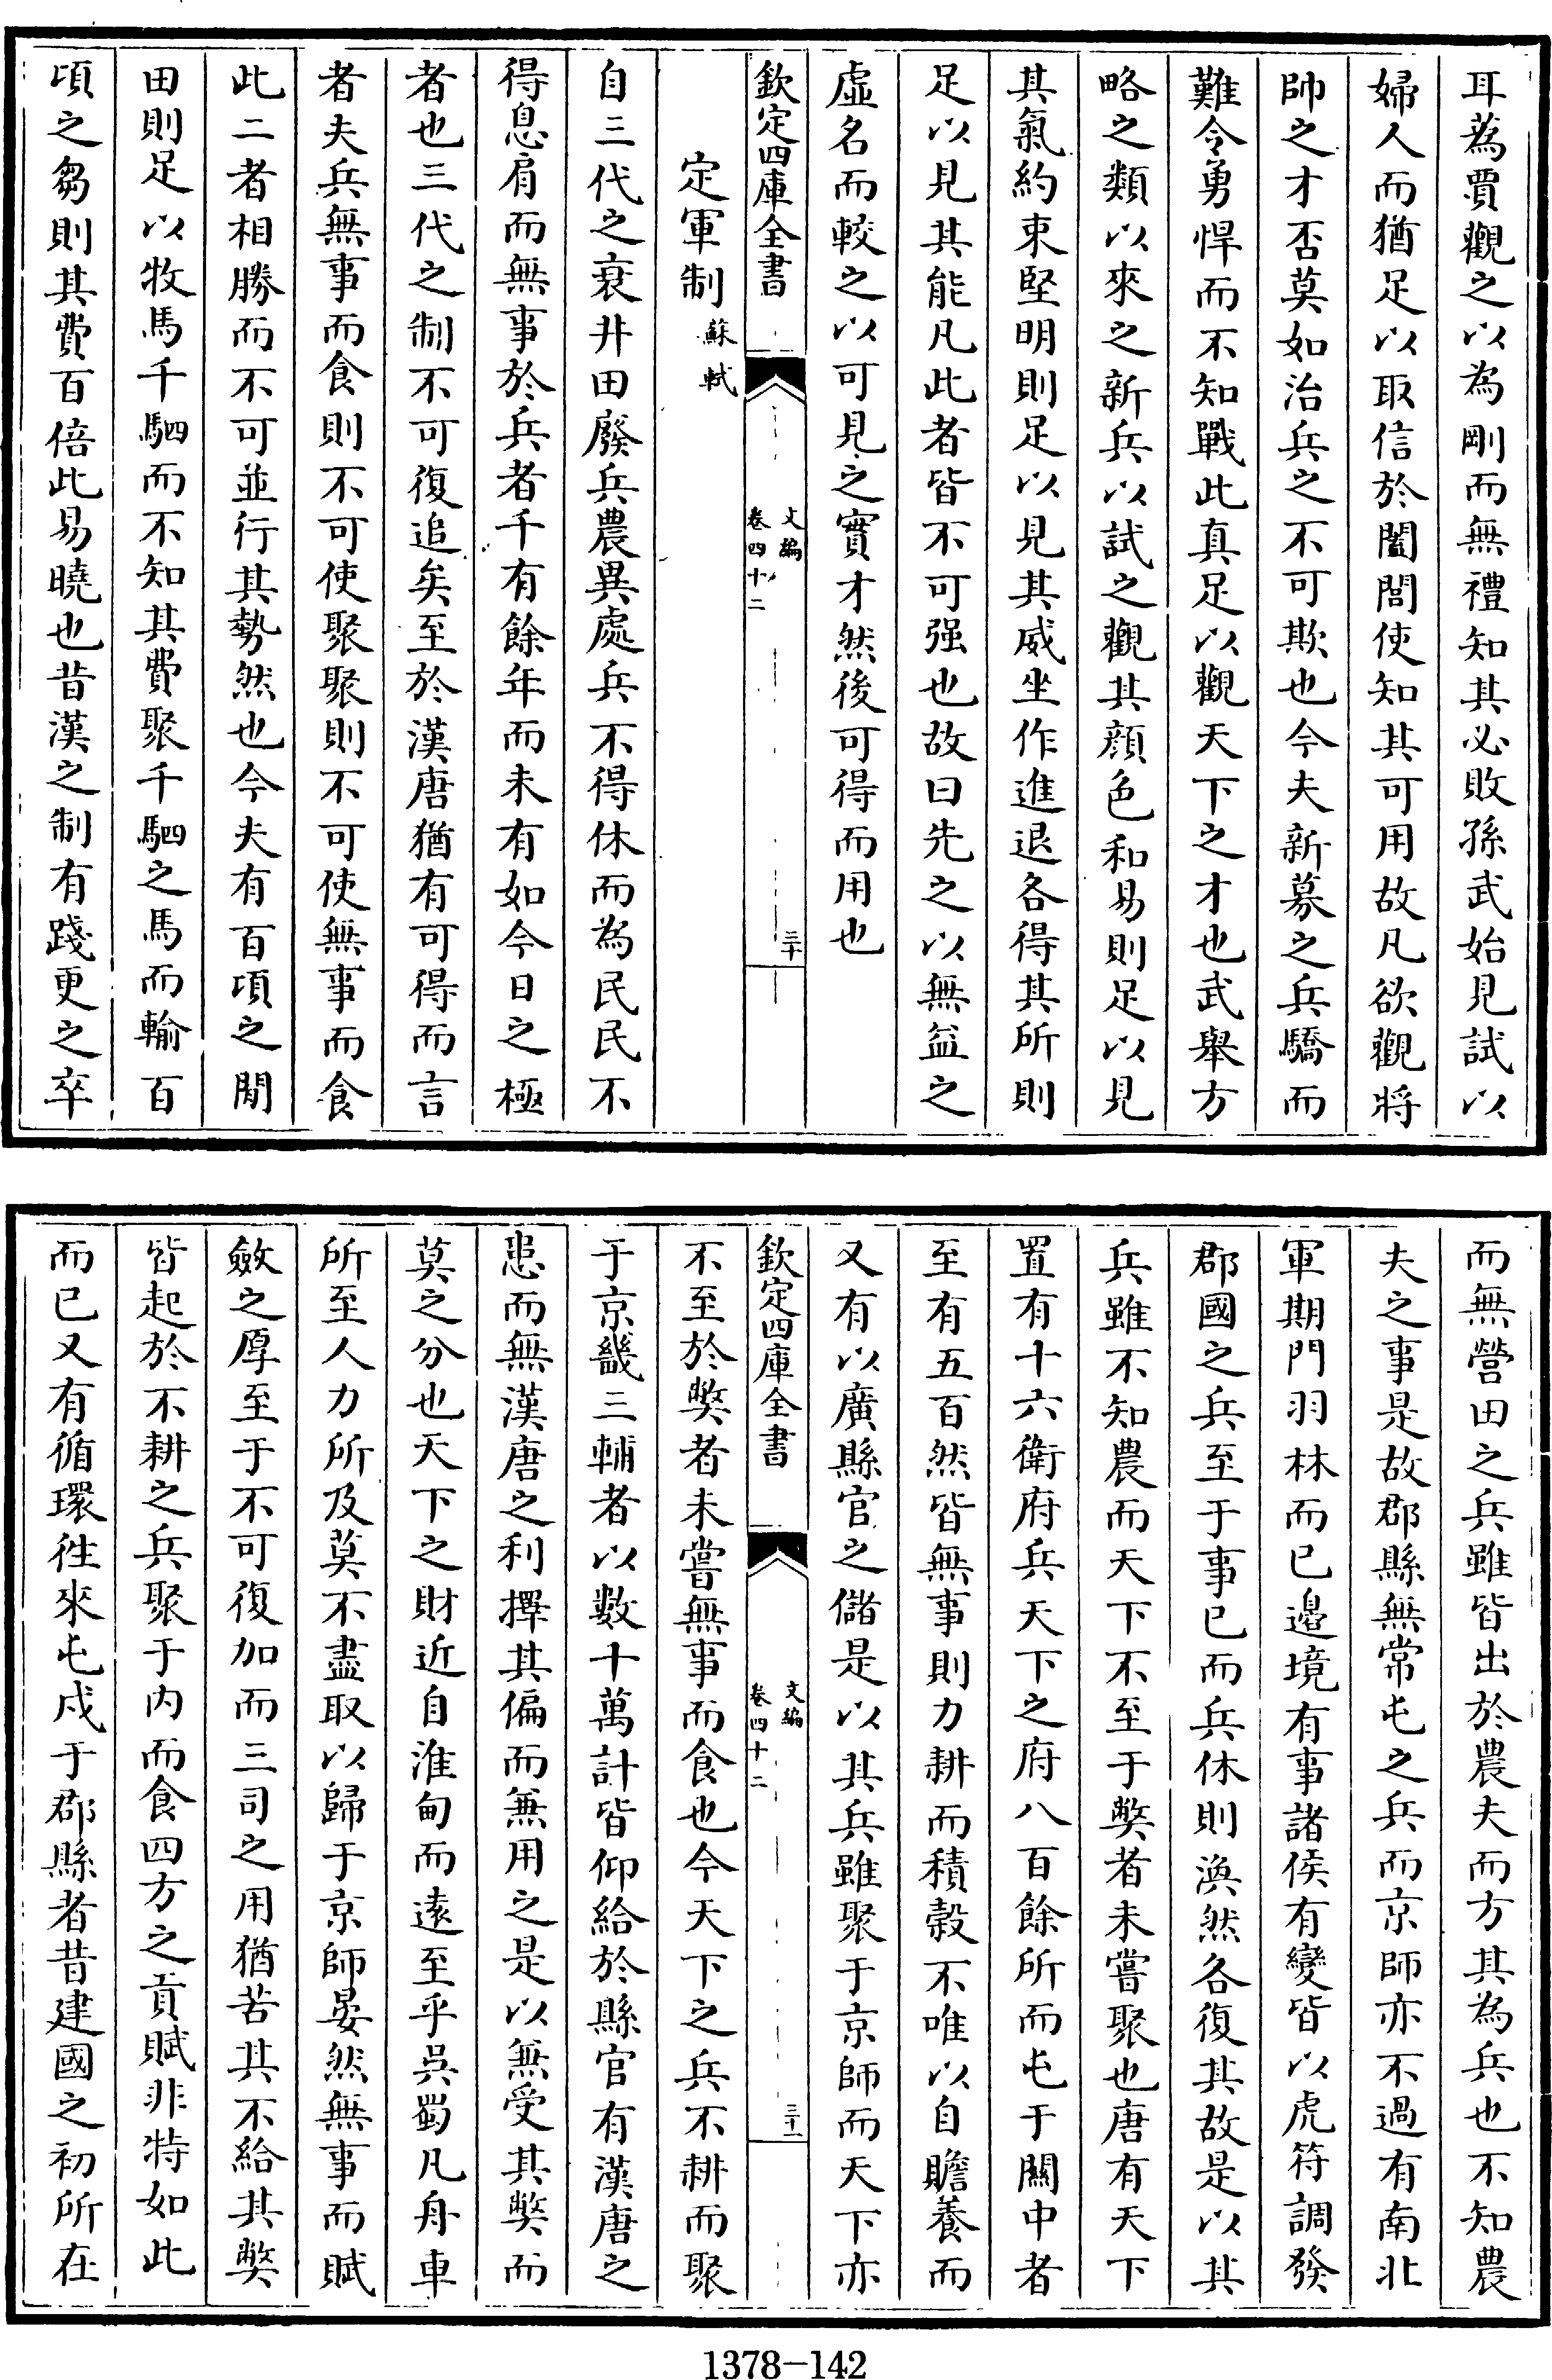 耳蒍賈觀之以為剛而無禮知其必敗孫武始見試以
婦人而猶足以取信於闔閭使知其可用故凡欲觀將
帥之才否莫如治兵之不可欺也今夫新募之兵驕而
難令勇悍而不知戰此真足以觀天下之才也武舉方
略之類以來之新兵以試之觀其顔色和易則足以見
其氣約束堅明則足以見其威坐作進退各得其所則
足以見其能凡此者皆不可强也故曰先之以無益之
虛名而較之以可見之實才然後可得而用也
欽定四庫全書
文編
卷四十二
三十
定軍制 蘇軾
自三代之衰井田廢兵農異處兵不得休而為民民不
得息肩而無事於兵者千有餘年而未有如今日之極
者也三代之制不可復追矣至於漢唐猶有可得而言
者夫兵無事而食則不可使聚聚則不可使無事而食
此二者相勝而不可並行其勢然也今夫有百頃之閒
田則足以牧馬千駟而不知其費聚千駟之馬而輸百
頃之芻則其費百倍此易曉也昔漢之制有踐更之卒
而無營田之兵雖皆出於農夫而方其為兵也不知農
夫之事是故郡縣無常屯之兵而京師亦不過有南北
軍期門羽林而已邊境有事諸侯有變皆以虎符調發
郡國之兵至于事已而兵休則渙然各復其故是以其
兵雖不知農而天下不至于弊者未嘗聚也唐有天下
置有十六衛府兵天下之府八百餘所而屯于關中者
至有五百然皆無事則力耕而積穀不唯以自贍養而
又有以廣縣官之儲是以其兵雖聚于京師而天下亦
欽定四庫全書
文編
卷四十二
三十一
不至於弊者未嘗無事而食也今天下之兵不耕而聚
于京畿三輔者以數十萬計皆仰給於縣官有漢唐之
患而無漢唐之利擇其偏而兼用之是以兼受其弊而
莫之分也天下之財近自淮甸而遠至乎吳蜀凡舟車
所至人力所及莫不盡取以歸于京師晏然無事而賦
斂之厚至于不可復加而三司之用猶苦其不給其弊
皆起於不耕之兵聚于内而食四方之貢賦非特如此
而已又有循環往來屯戍于郡縣者昔建國之初所在
1378－142